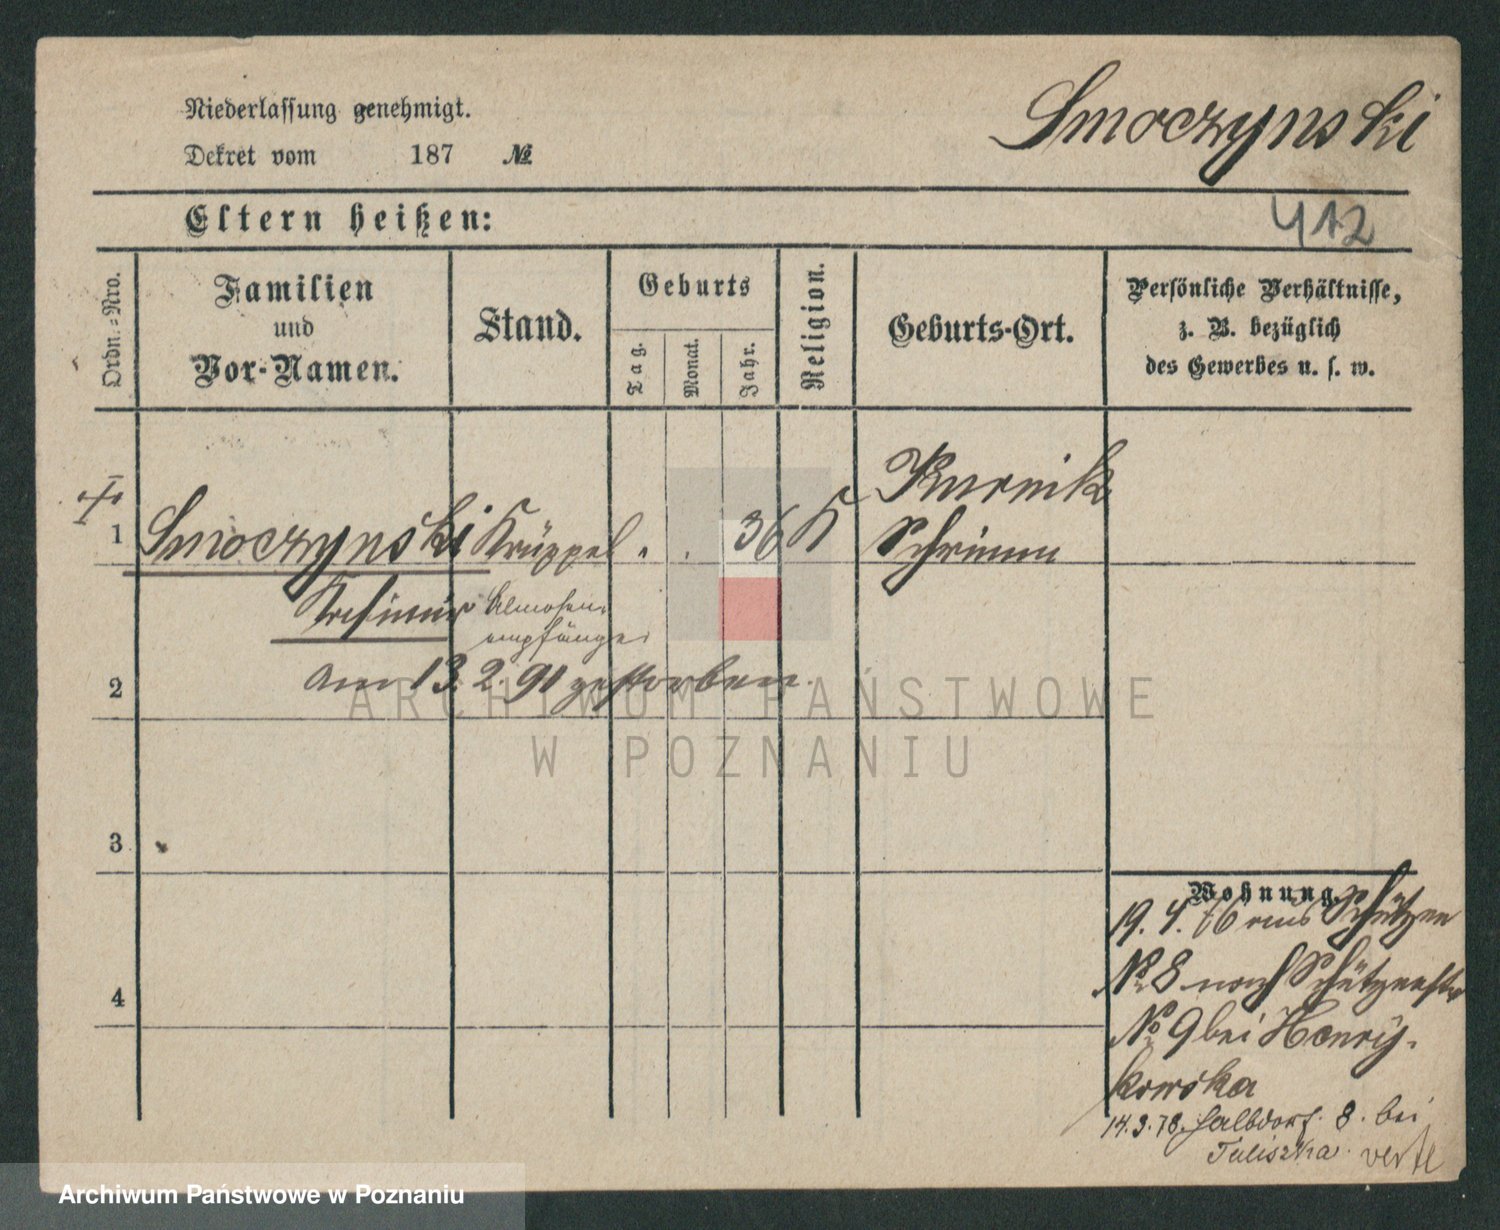 Smoczynski
Niederlassung genehmigt.
Dekret vom 187 №
Eltern heißen:
412
Ordn.-Nro.
Familien
und
Vor-Namen.
Stand.
Geburts
Tag.
Monat.
Jahr.
Religion.
Geburts-Ort.
Persönliche Verhältnisse,
z. B. bezüglich
des Gewerbes u. s. w.
Kurnik
1 Smoczynski Krüppel . . 36 K Schrimm
Almosen
empfänger
2 am 13. 2. 91 gestorben.
ARCHIWUM PAŃSTWOWE
W POZNANIU
3
4
Wohnung.
19. 4. 76 aus Schützen
No 8 nach Schützenstr
No 9 bei Henry-
kowska
14.3.78. Halbdorf. 8. bei
Tuliszka. verte
Archiwum Państwowe w Poznaniu